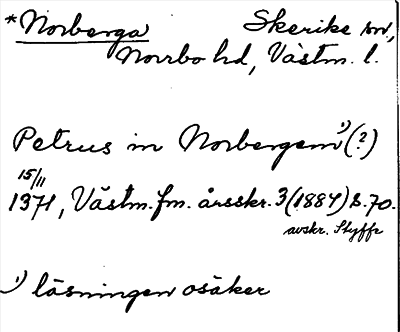 *Norberga Skerike sn,
Norrbo hd, Västm. l.
Petrus in Norbergem¹⁾(?)
15/11
1371, Västm. fm. årsskr. 3(1884) s. 70.
avskr. Styffe
¹⁾ läsningen osäker